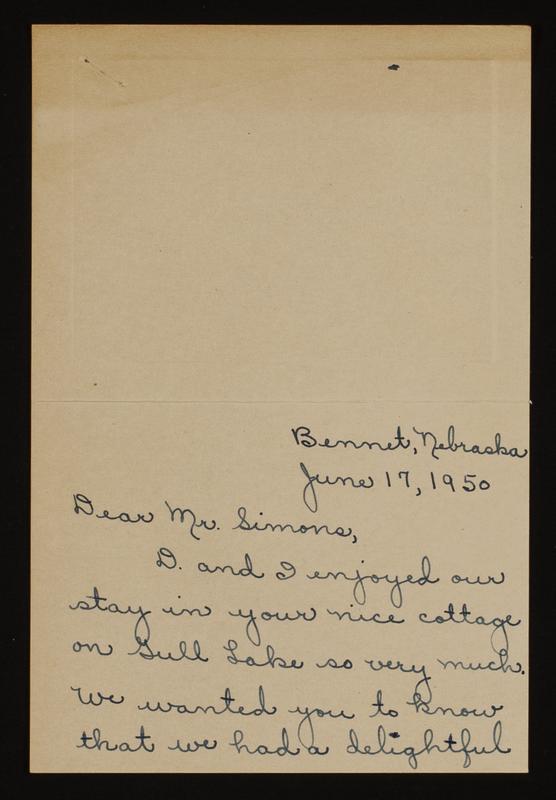 Bennet, Nebraska
June 17, 1950
Dear Mr. Simons,
D. and I enjoyed our
stay in your nice cottage
on Gull Lake so very much.
We wanted you to know
that we had a delightful